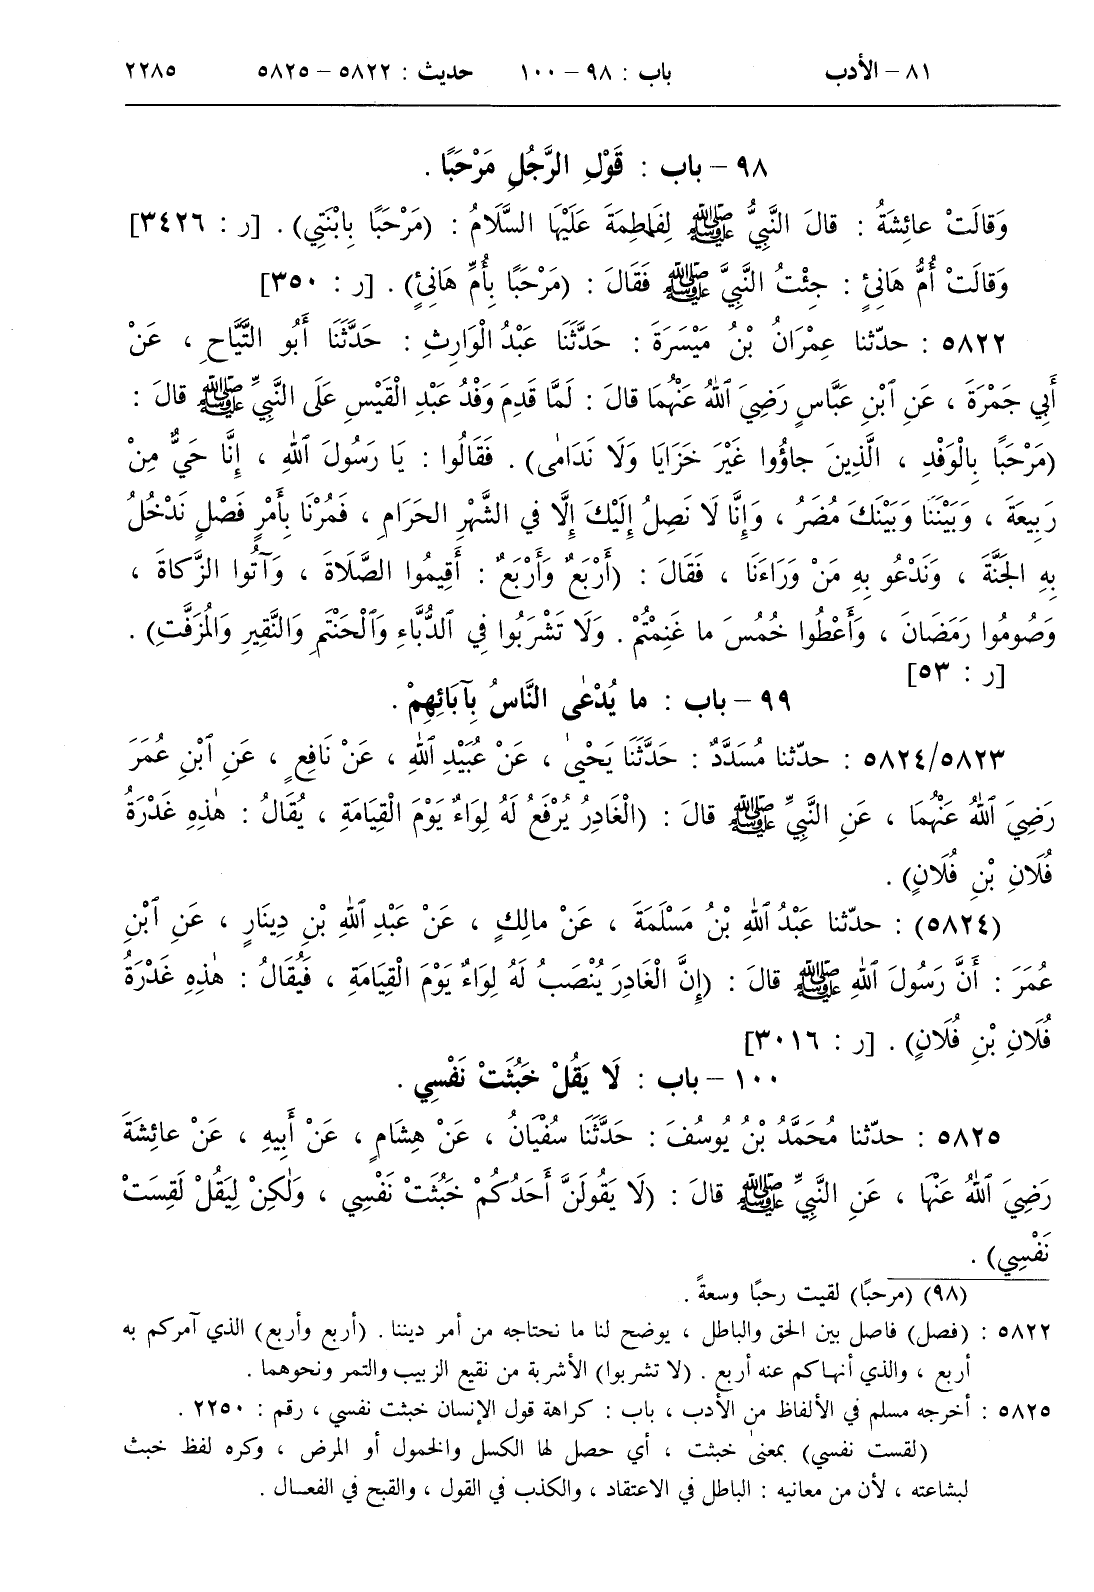 ٨١ – الأدب باب : ٩٨ – ١٠٠ حديث : ٥٨٢٢ – ٥٨٢٥ ٢٢٨٥
٩٨ – باب : قَوْلِ الرَّجُلِ مَرْحَبًا .
وَقالَتْ عائِشَةُ : قالَ النَّبِيُّ ﷺ لِفَاطِمَةَ عَلَيْهَا السَّلَامُ : (مَرْحَبًا بِابْنَتِي) . [ر : ٣٤٢٦]
وَقالَتْ أُمُّ هَانِئٍ : جِئْتُ النَّبِيَّ ﷺ فَقَالَ : (مَرْحَبًا بِأُمِّ هَانِئٍ) . [ر : ٣٥٠]
٥٨٢٢ : حدّثنا عِمْرَانُ بْنُ مَيْسَرَةَ : حَدَّثَنَا عَبْدُ الْوَارِثِ : حَدَّثَنَا أَبُو التَّيَّاحِ ، عَنْ
أَبِي جَمْرَةَ ، عَنِ ٱبْنِ عَبَّاسٍ رَضِيَ ٱللهُ عَنْهُمَا قالَ : لَمَّا قَدِمَ وَفْدُ عَبْدِ الْقَيْسِ عَلَى النَّبِيِّ ﷺ قالَ :
(مَرْحَبًا بِالْوَفْدِ ، الَّذِينَ جاؤُوا غَيْرَ خَزَايَا وَلَا نَدَامٰى) . فَقَالُوا : يَا رَسُولَ ٱللهِ ، إِنَّا حَيٌّ مِنْ
رَبِيعَةَ ، وَبَيْنَنَا وَبَيْنَكَ مُضَرُ ، وَإِنَّا لَا نَصِلُ إِلَيْكَ إِلَّا في الشَّهْرِ الحَرَامِ ، فَمُرْنَا بِأَمْرٍ فَصْلٍ نَدْخُلُ
بِهِ الجَنَّةَ ، وَنَدْعُو بِهِ مَنْ وَرَاءَنَا ، فَقَالَ : (أَرْبَعٌ وَأَرْبَعٌ : أَقِيمُوا الصَّلَاةَ ، وَآتُوا الزَّكاةَ ،
وَصُومُوا رَمَضَانَ ، وَأَعْطُوا خُمُسَ ما غَنِمْتُمْ . وَلَا تَشْرَبُوا فِي ٱلدُّبَّاءِ وَٱلْحَنْتَمِ وَالنَّقِيرِ وَالْمُزَفَّتِ) .
[ر : ٥٣]
٩٩ – باب : ما يُدْعٰى النَّاسُ بِآبَائِهِمْ .
٥٨٢٤/٥٨٢٣ : حدّثنا مُسَدَّدٌ : حَدَّثَنَا يَحْيىٰ ، عَنْ عُبَيْدِ ٱللهِ ، عَنْ نَافِعٍ ، عَنِ ٱبْنِ عُمَرَ
رَضِيَ ٱللهُ عَنْهُمَا ، عَنِ النَّبِيِّ ﷺ قالَ : (الْغَادِرُ يُرْفَعُ لَهُ لِوَاءٌ يَوْمَ الْقِيَامَةِ ، يُقَالُ : هٰذِهِ غَدْرَةُ
فُلَانِ بْنِ فُلَانٍ) .
(٥٨٢٤) : حدّثنا عَبْدُ ٱللهِ بْنُ مَسْلَمَةَ ، عَنْ مالِكٍ ، عَنْ عَبْدِ ٱللهِ بْنِ دِينَارٍ ، عَنِ ٱبْنِ
عُمَرَ : أَنَّ رَسُولَ ٱللهِ ﷺ قالَ : (إِنَّ الْغَادِرَ يُنْصَبُ لَهُ لِوَاءٌ يَوْمَ الْقِيَامَةِ ، فَيُقَالُ : هٰذِهِ غَدْرَةُ
فُلَانِ بْنِ فُلَانٍ) . [ر : ٣٠١٦]
١٠٠ – باب : لَا يَقُلْ خَبُثَتْ نَفْسِي .
٥٨٢٥ : حدّثنا مُحَمَّدُ بْنُ يُوسُفَ : حَدَّثَنَا سُفْيَانُ ، عَنْ هِشَامٍ ، عَنْ أَبِيهِ ، عَنْ عائِشَةَ
رَضِيَ ٱللهُ عَنْهَا ، عَنِ النَّبِيِّ ﷺ قالَ : (لَا يَقُولَنَّ أَحَدُكُمْ خَبُثَتْ نَفْسِي ، وَلٰكِنْ لِيَقُلْ لَقِسَتْ
نَفْسِي) .
(٩٨) (مرحبًا) لقيت رحبًا وسعةً .
٥٨٢٢ : (فصل) فاصل بين الحق والباطل ، يوضح لنا ما نحتاجه من أمر ديننا . (أربع وأربع) الذي آمركم به
أربع ، والذي أنهاكم عنه أربع . (لا تشربوا) الأشربة من نقيع الزبيب والتمر ونحوهما .
٥٨٢٥ : أخرجه مسلم في الألفاظ من الأدب ، باب : كراهة قول الإنسان خبثت نفسي ، رقم : ٢٢٥٠ .
(لقست نفسي) بمعنىٰ خبثت ، أي حصل لها الكسل والخمول أو المرض ، وكره لفظ خبث
لبشاعته ، لأن من معانيه : الباطل في الاعتقاد ، والكذب في القول ، والقبح في الفعال .